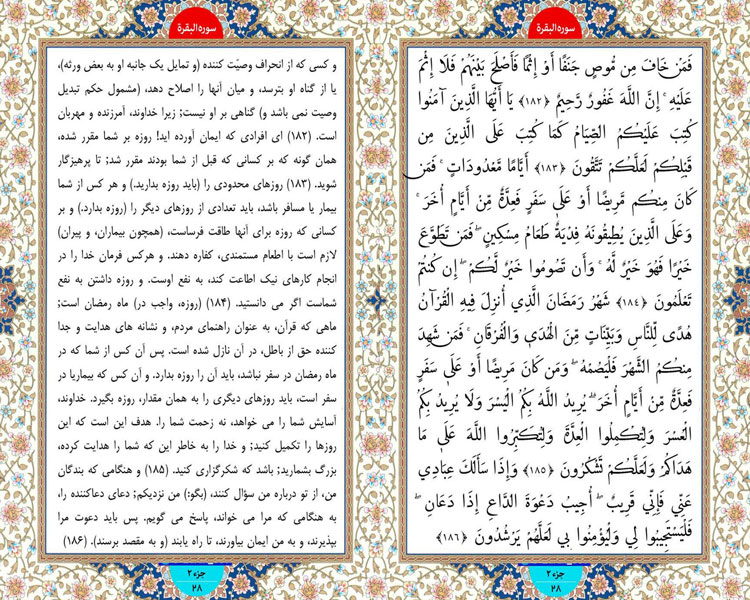 سوره البقرة
فَمَنْ خَافَ مِن مُّوصٍ جَنَفًا أَوْ إِثْمًا فَأَصْلَحَ بَيْنَهُمْ فَلَا إِثْمَ
عَلَيْهِ ۚ إِنَّ اللَّهَ غَفُورٌ رَّحِيمٌ ﴿١٨٢﴾ يَا أَيُّهَا الَّذِينَ آمَنُوا
كُتِبَ عَلَيْكُمُ الصِّيَامُ كَمَا كُتِبَ عَلَى الَّذِينَ مِن
قَبْلِكُمْ لَعَلَّكُمْ تَتَّقُونَ ﴿١٨٣﴾ أَيَّامًا مَّعْدُودَاتٍ ۚ فَمَن
كَانَ مِنكُم مَّرِيضًا أَوْ عَلَىٰ سَفَرٍ فَعِدَّةٌ مِّنْ أَيَّامٍ أُخَرَ ۚ
وَعَلَى الَّذِينَ يُطِيقُونَهُ فِدْيَةٌ طَعَامُ مِسْكِينٍ ۖ فَمَن تَطَوَّعَ
خَيْرًا فَهُوَ خَيْرٌ لَّهُ ۚ وَأَن تَصُومُوا خَيْرٌ لَّكُمْ ۖ إِن كُنتُمْ
تَعْلَمُونَ ﴿١٨٤﴾ شَهْرُ رَمَضَانَ الَّذِي أُنزِلَ فِيهِ الْقُرْآنُ
هُدًى لِّلنَّاسِ وَبَيِّنَاتٍ مِّنَ الْهُدَىٰ وَالْفُرْقَانِ ۚ فَمَن شَهِدَ
مِنكُمُ الشَّهْرَ فَلْيَصُمْهُ ۖ وَمَن كَانَ مَرِيضًا أَوْ عَلَىٰ سَفَرٍ
فَعِدَّةٌ مِّنْ أَيَّامٍ أُخَرَ ۗ يُرِيدُ اللَّهُ بِكُمُ الْيُسْرَ وَلَا يُرِيدُ بِكُمُ
الْعُسْرَ وَلِتُكْمِلُوا الْعِدَّةَ وَلِتُكَبِّرُوا اللَّهَ عَلَىٰ مَا
هَدَاكُمْ وَلَعَلَّكُمْ تَشْكُرُونَ ﴿١٨٥﴾ وَإِذَا سَأَلَكَ عِبَادِي
عَنِّي فَإِنِّي قَرِيبٌ ۖ أُجِيبُ دَعْوَةَ الدَّاعِ إِذَا دَعَانِ ۖ
فَلْيَسْتَجِيبُوا لِي وَلْيُؤْمِنُوا بِي لَعَلَّهُمْ يَرْشُدُونَ ﴿١٨٦﴾
جزء ۲
۲۸
سوره البقرة
و کسی که از انحراف وصیّت کننده (و تمایل یک جانبه او به بعض ورثه)،
یا از گناه او بترسد، و میان آنها را اصلاح دهد، (مشمول حکم تبدیل
وصیت نمی باشد و) گناهی بر او نیست; زیرا خداوند، آمرزنده و مهربان
است. (۱۸۲) ای افرادی که ایمان آورده اید! روزه بر شما مقرر شده،
همان گونه که بر کسانی که قبل از شما بودند مقرر شد; تا پرهیزگار
شوید. (۱۸۳) روزهای محدودی را (باید روزه بدارید.) و هر کس از شما
بیمار یا مسافر باشد، باید تعدادی از روزهای دیگر را (روزه بدارد.) و بر
کسانی که روزه برای آنها طاقت فرساست، (همچون بیماران، و پیران)
لازم است با اطعام مستمندی، کفاره دهند. و هرکس فرمان خدا را در
انجام کارهای نیک اطاعت کند، به نفع اوست. و روزه داشتن به نفع
شماست اگر می دانستید. (۱۸۴) (روزه، واجب در) ماه رمضان است;
ماهی که قرآن، به عنوان راهنمای مردم، و نشانه های هدایت و جدا
کننده حق از باطل، در آن نازل شده است. پس آن کس از شما که در
ماه رمضان در سفر نباشد، باید آن را روزه بدارد. و آن کس که بیماریا در
سفر است، باید روزهای دیگری را به همان مقدار، روزه بگیرد. خداوند،
آسایش شما را می خواهد، نه زحمت شما را. هدف این است که این
روزها را تکمیل کنید; و خدا را به خاطر این که شما را هدایت کرده،
بزرگ بشمارید; باشد که شکرگزاری کنید. (۱۸۵) و هنگامی که بندگان
من، از تو درباره من سؤال کنند، (بگو:) من نزدیکم; دعای دعاکننده را،
به هنگامی که مرا می خواند، پاسخ می گویم. پس باید دعوت مرا
بپذیرند، و به من ایمان بیاورند، تا راه یابند (و به مقصد برسند). (۱۸۶)
جزء ۲
۲۸